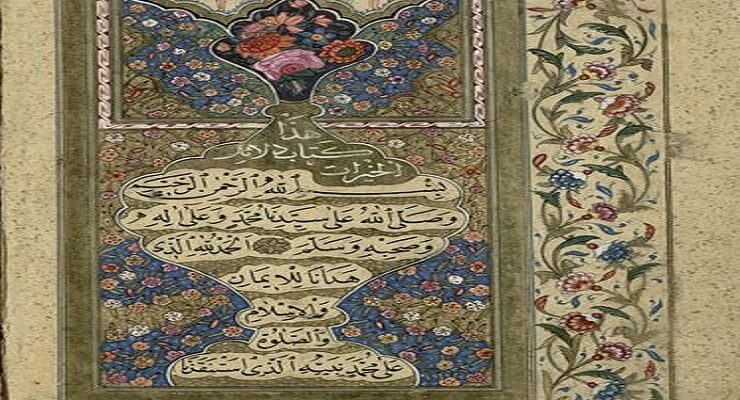 هذا
كتاب دلائل
الخيرات
بِسْمِ اللّٰهِ الرَّحْمٰنِ الرَّحِيْمِ
وَصَلَّى اللّٰهُ عَلٰى سَيِّدِنَا مُحَمَّدٍ وَعَلٰى اٰلِهٖ وَ
وَصَحْبِهٖ وَسَلَّمَ اَلْحَمْدُ لِلّٰهِ الَّذِى
هَدَانَا لِلْاِيْمَانِ
وَالْاِسْلَامِ
وَالصَّلٰوةُ
عَلٰى مُحَمَّدٍ نَبِيِّهِ الَّذِى اسْتَنْقَذَنَا